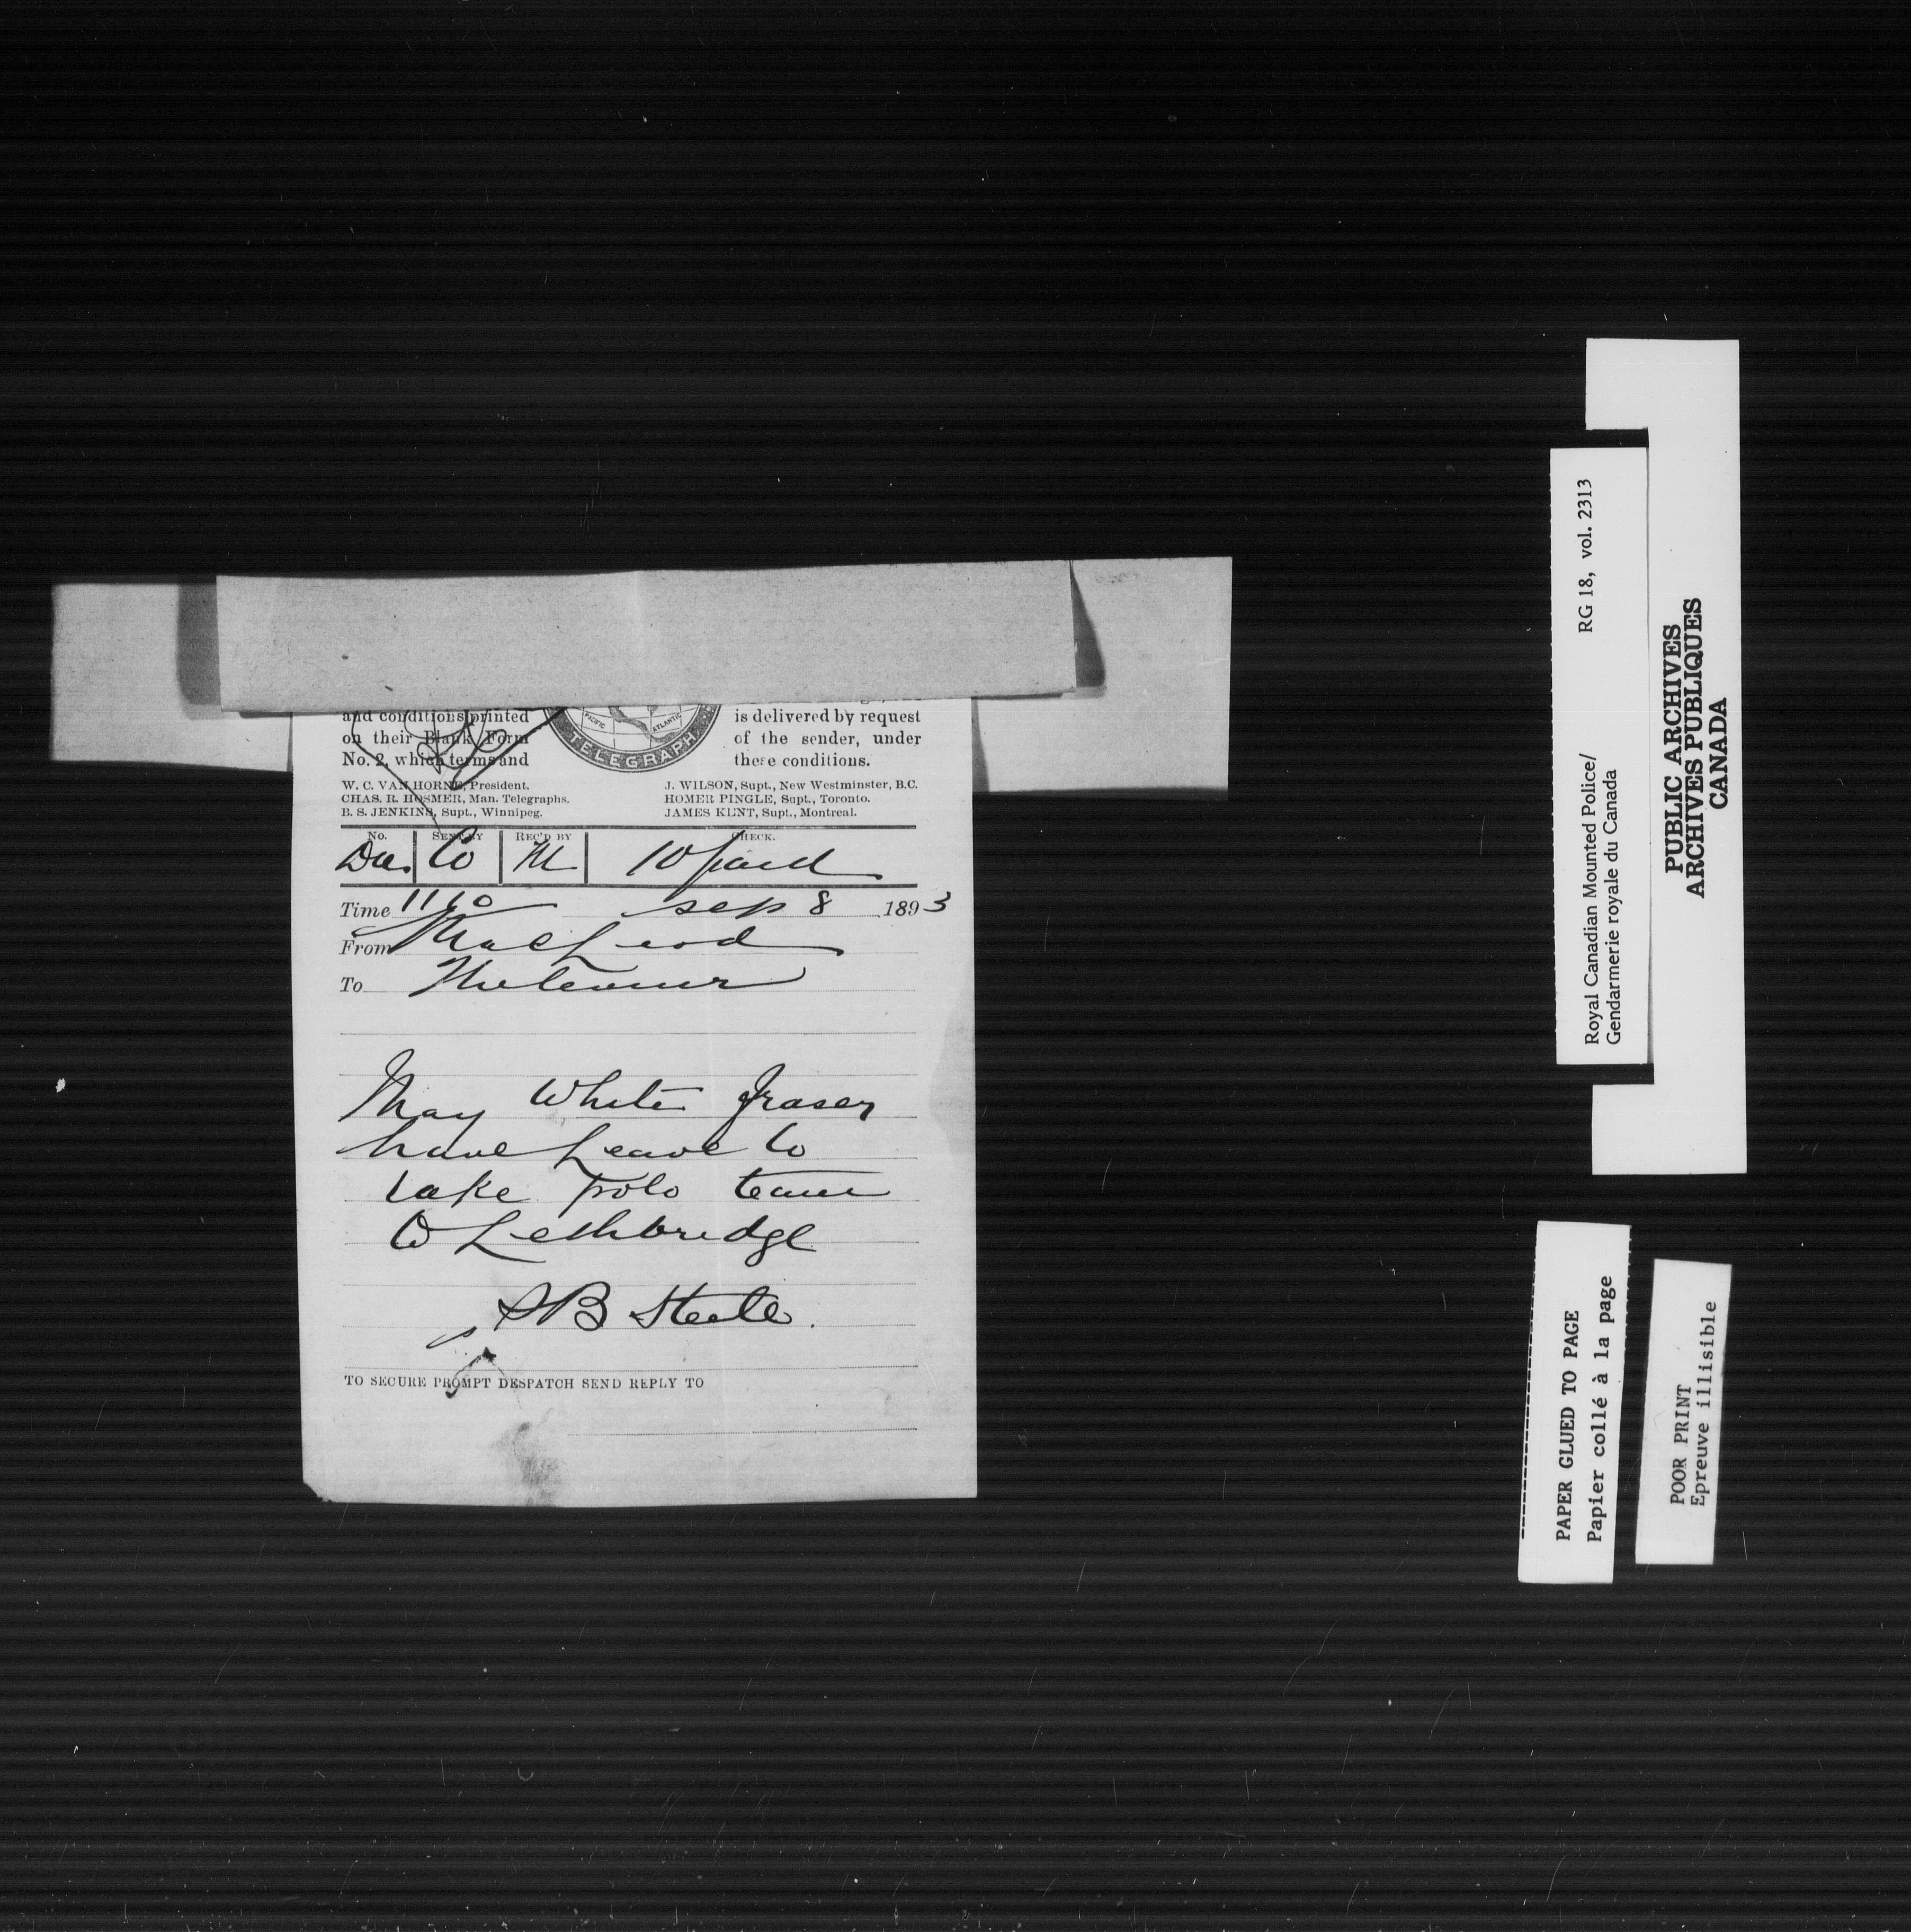 and conditions printed
on their Blank Form
No. 2, which terms and
PACIFIC
ATLANTIC
TELEGRAPH
is delivered by request
of the sender, under
these conditions.
W. C. VAN HORNE, President.
CHAS. R. HOSMER, Man. Telegraphs.
B. S. JENKINS, Supt., Winnipeg.
J. WILSON, Supt., New Westminster, B.C.
HOMER PINGLE, Supt., Toronto.
JAMES KENT, Supt., Montreal.
No. SENT BY REC'D BY CHECK.
Co M 10 paid
Time 1110 Sep 8 1893
From MacLeod
To
May White Fraser
have Leave to
take polo team
to Lethbridge
SB Steele.
TO SECURE PROMPT DESPATCH SEND REPLY TO
Royal Canadian Mounted Police/ RG 18, vol. 2313
Gendarmerie royale du Canada
PUBLIC ARCHIVES
ARCHIVES PUBLIQUES
CANADA
PAPER GLUED TO PAGE
Papier collé à la page
POOR PRINT
Epreuve illisible